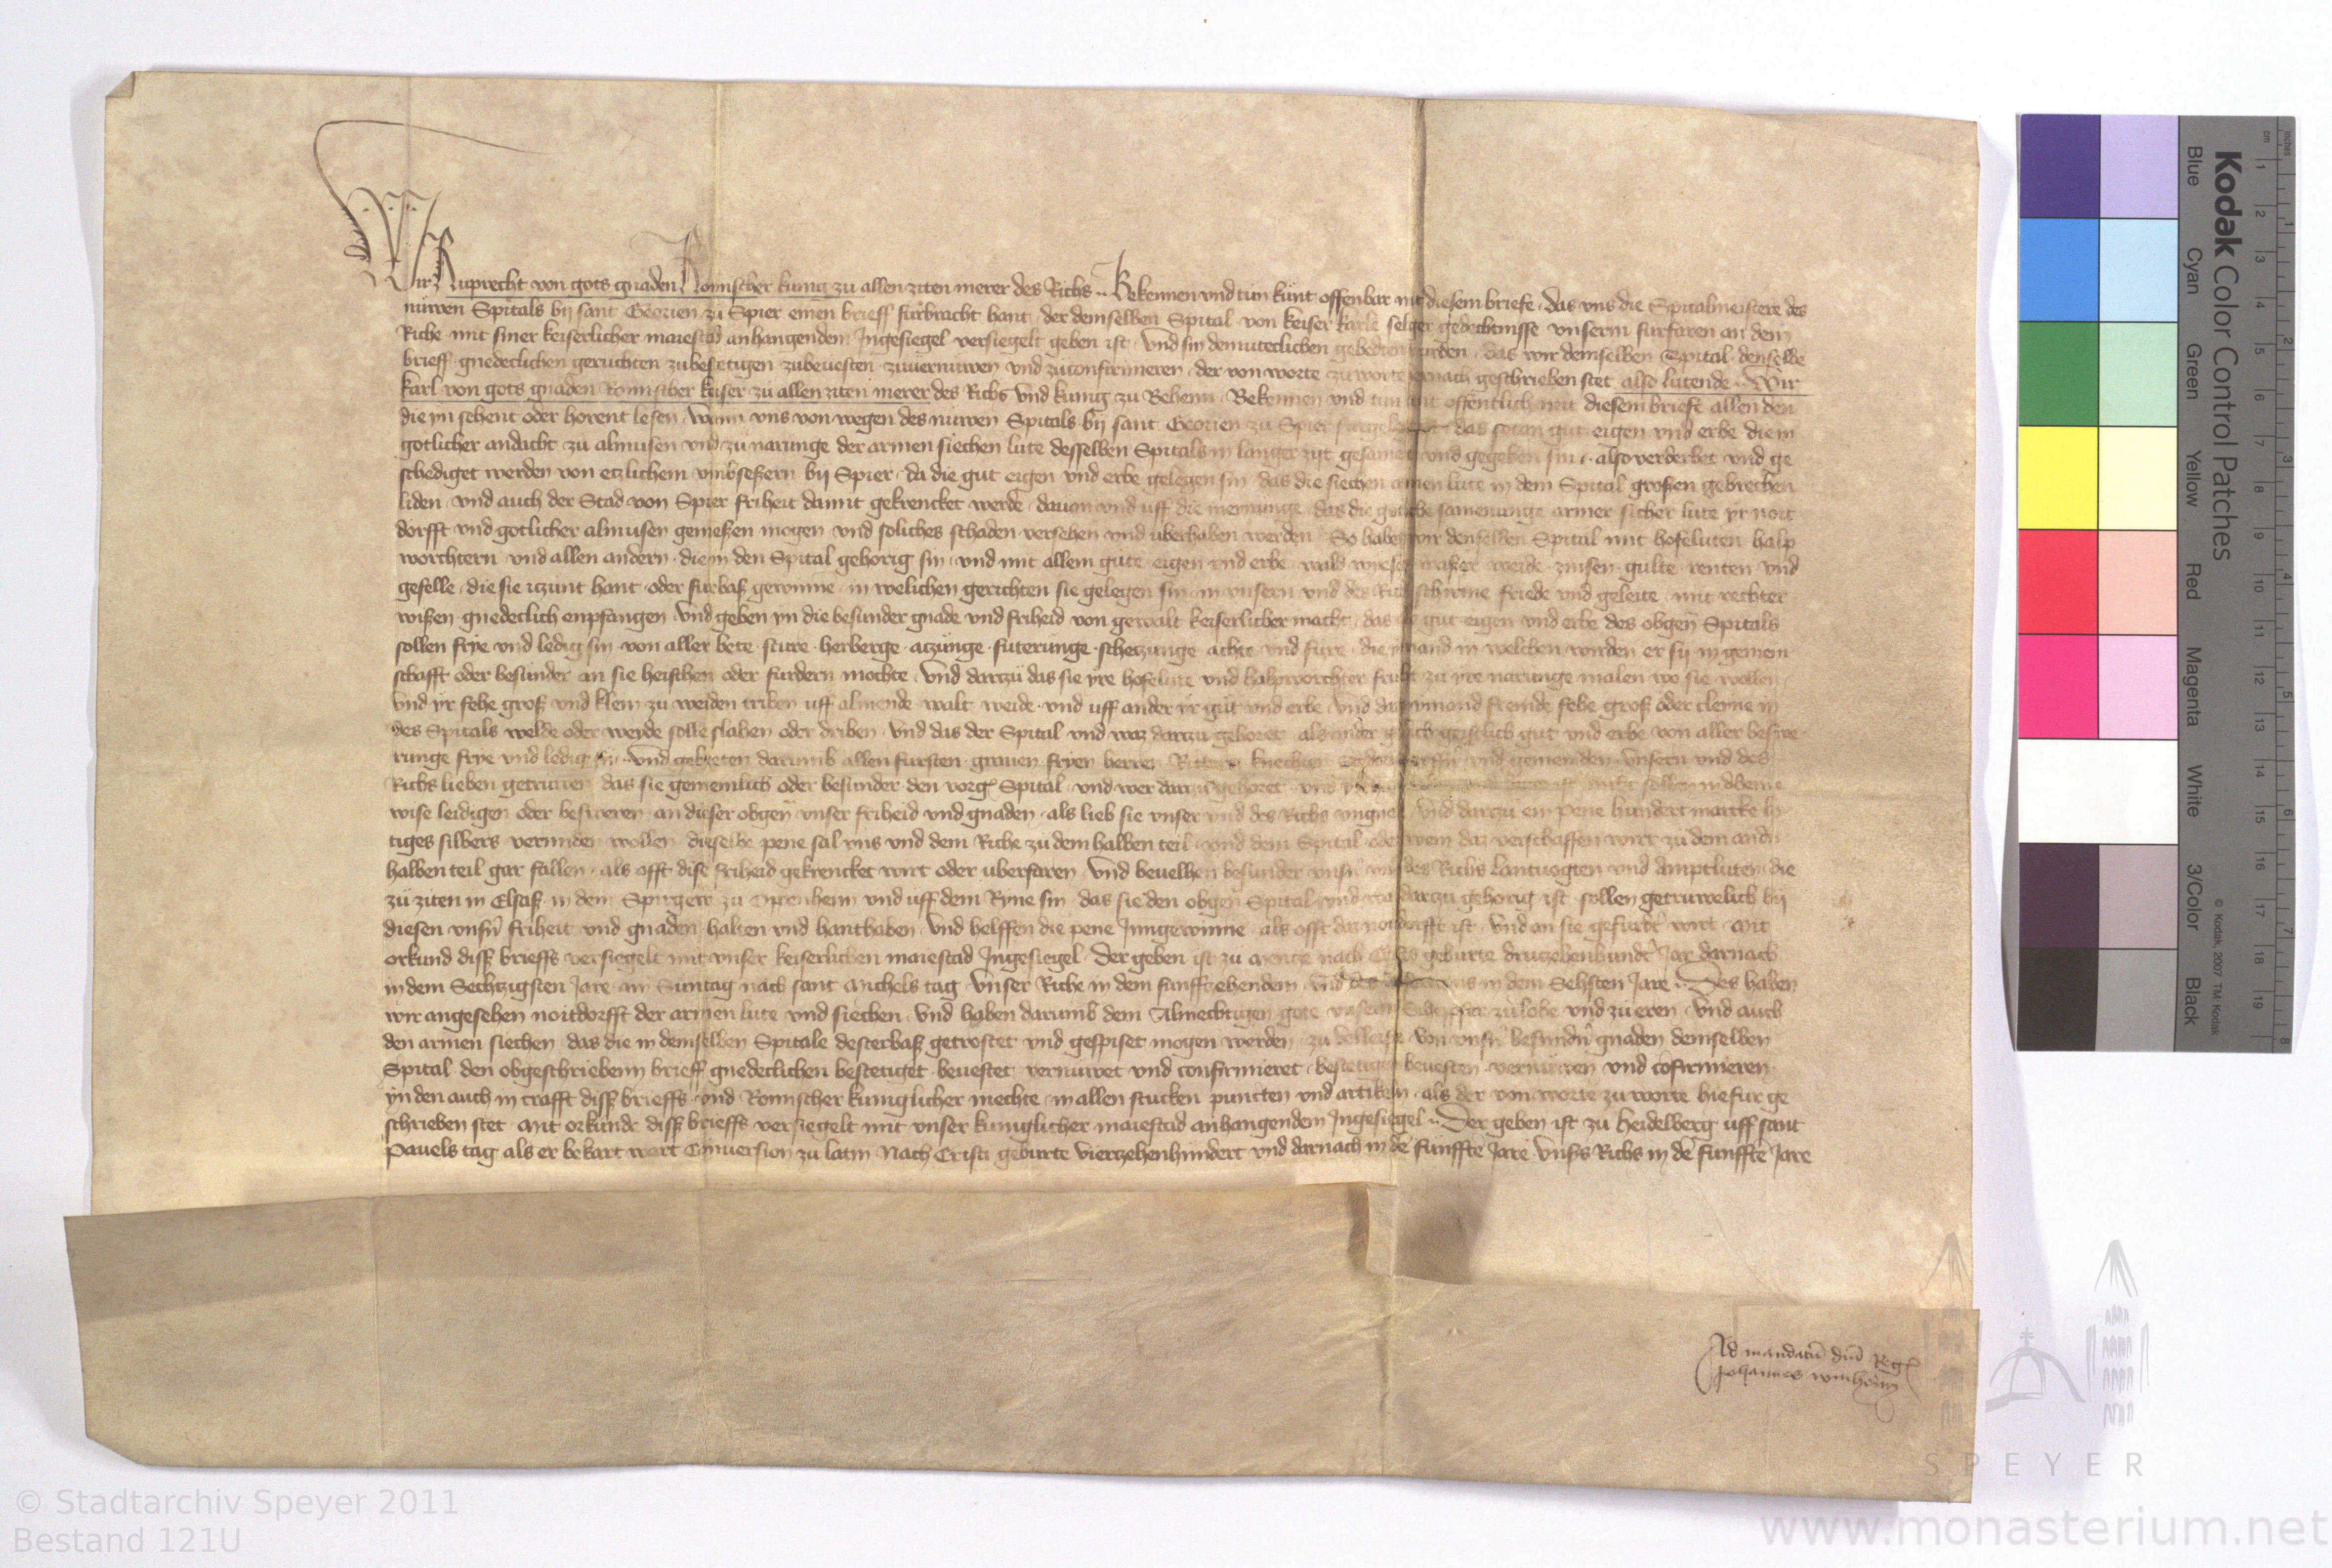 Wir Ruprecht von gots gnaden Romischer kunig zu allen ziten merer des Richs Bekennen und tun kunt offenbar mit diesem briefe das uns die Spitalmeistere des
nuwen Spitals bij sant Georien zu Spier einen brieff furbracht hant der demselben Spital von keiser Karle seliger gedechtnisse unserm furfaren an dem
Riche mit siner keiserlicher maiestad anhangendem Ingesiegel versiegelt geben ist und sin demuteclichen gebeden worden das wir demselben Spital denselbe
brieff gnedeclichen geruchten zubestetigen zubevesten zuvernuwen und zuconfirmieren der von worte zu worte hernach geschrieben stet also lutende Wir
Karl von gots gnaden Romischer keiser zu allen ziten merer des Richs und kunig zu Behem Bekennen und tun kunt offentlich mit diesem briefe allen den
die yn sehent oder horent lesen Wann uns von wegen des nuwen Spitals bij sant Georien zu Spier das sotan gut eigen und erbe die in
gotlicher andacht zu almusen und zu narunge der armen siechen lute desselben Spitals in langer zijt gesamet und gegeben sin also verderbet und ge
schediget werden von etzlichem umbseßern bij Spier da die gut eigen und erbe gelegen sin das die siechen armen lute in dem Spital großen gebrechen
liden und auch der Stad von Spier friheit damit gekrencket werde davon und uff die meynunge das die samenunge armer sicher lute yr noit
dorfft und gotlicher almusen genießen mogen und soliches schaden versehen und uberhaben werden So haben wir denselben Spital mit hofeluten halp
worchtern und allen andern die in den Spital gehorig sin und mit allem gute eigen und erbe wald wiesen waßer weide zinsen gulte renten und
gefelle die sie itzunt hant oder furbaß gewinne in welichen gerichten sie gelegen sin in unsern und des Richs schirme friede und geleite mit rechter
wißen gnedeclich enpfangen Und geben yn die besunder gnade und friheid von gewalt keiserlicher macht das gut eigen und erbe des obgen Spitals
sollen frye und ledig sin von aller bete sture herberge atzunge futerunge schetzunge achte und fure die ymand in welchen wirden er sij in gemein
schafft oder besunder an sie heischen oder furdern mochte Und dartzu das sie yre hofelute und halpworchter frucht zu yre narunge malen wo sie wollen
Und yr fehe groß und klein zu weiden triben uff almende walt weide und uff ander yr gut und erbe und das nymond fremde fehe groß oder cleine in
des Spitals welde oder weyde solle slahen oder driben und das der Spital und waz dartzu gehoret als geistlich gut und erbe von aller beswe
runge frye und ledig sij Und gebieten darumb allen fursten graven fryen herren Rittern knechten und gemeinden unsern und des
Richs lieben getruwen das sie gemeinlich oder besunder den vorg Spital und wer dartzu gehoret nicht sollen in dheine
wise leidigen oder besweren an dieser obgen unser friheid und gnaden als lieb sie unser und des Richs ungnad und dartzu ein pene hundert marcke lo
tiges silbers vermiden wollen dieselbe pene sal uns und dem Riche zu dem halben teil und dem Spital oder wem daz verschaffen wirt zu dem andn
halben teil gar fallen als offt dise friheid gekrencket wirt oder uberfaren Und bevelhen besunder unsn und des Richs Lantvogten und Amptluten die
zu ziten in Elsaß in dem Spirgew zu Oppenheim und uff dem Ryne sin das sie den obgen Spital und waz dartzu gehorig ist sollen getruwelich bij
diesen unsn friheit und gnaden halten und hanthaben und helffen die pene Inngewinne als offt daz noitdorfft ist und an sie gefurdet wirt Mit
orkund diß brieffs versiegelt mit unser keiserlichen maiestad Ingesiegel Der geben ist zu Mentze nach Crists geburte drutzehenhundt Jar darnach
in dem Sechtzigsten Jare am Suntag nach sant Michels tag unser Riche in dem funfftzehendem und des in dem Sehsten Jare Des haben
wir angesehen noitdorfft der armen lute und siechen und haben darumb dem Almechtigen gote unserm Schopfer zu lobe und zu eren und auch
den armen siechen das die in demselben Spitale desterbaß getrostet und gespiset mogen werden von unsn besundn gnaden demselben
Spital den obgeschriebenn brieff gnedeclichen bestetiget bevestet vernuwet und confirmieret bestetigen bevesten vernuwen und cofirmieren
yn den auch in crafft diß brieffs und Romischer kuniglicher mechte in allen stucken puncten und artikeln als der von worte zu worte hiefur ge
schrieben stet Mit orkunde diß brieffs versiegelt mit unser kuniglicher maiestad anhangendem Ingesiegel Der geben ist zu Heidelberg uff sant
Pauels tag als er bekart wart Conversion zu latin Nach Cristi geburte viertzehenhundert und darnach in de funffte Jare unsers Richs in de funffte Jare
Ad mandatu dni Reg
Johannes winheim
Kodak Color Control Patches
Blue Cyan Green Yellow Red Magenta White 3/Color Black
© Kodak, 2007 TM: Kodak
cm 1 2 3 4 5 6 7 8 9 10 11 12 13 14 15 16 17 18 19
inches 1 2 3 4 5 6 7 8
SPEYER
© Stadtarchiv Speyer 2011
Bestand 121U
www.monasterium.net